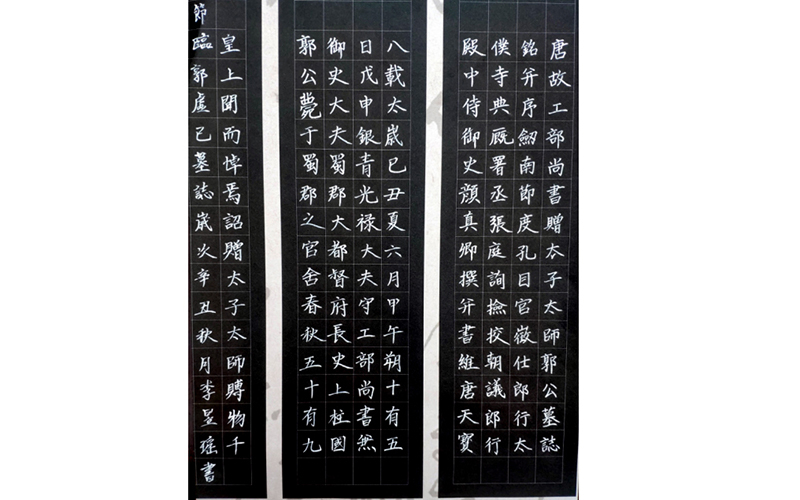 唐故工部尚書贈太子太師郭公墓誌
銘并序劒南節度孔目官徵仕郎行太
僕寺典廐署丞張庭詢撿挍朝議郎行
殿中侍御史顔真卿撰并書維唐天寶
八載太歲己丑夏六月甲午朔十有五
日戊申銀青光禄大夫守工部尚書無
御史大夫蜀郡大都督府長史上柱國
郭公薨于蜀郡之官舍春秋五十有九
皇上聞而悼焉詔贈太子太師賻物千
節臨郭虛己墓誌歲次辛丑秋月李昱瑶書